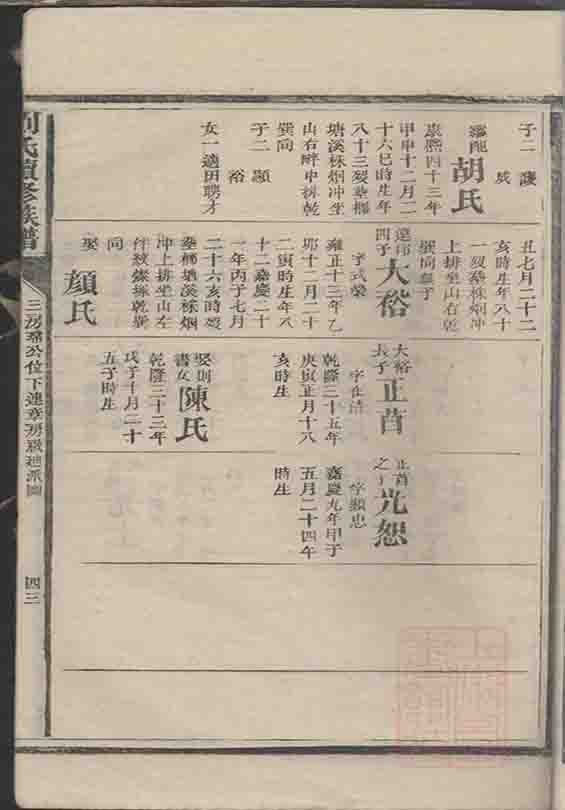 劉氏續修族譜
三房
公位下連章房
派圖
四三
子二
成
繼配胡氏
康熙四十三年
甲申十二月二
十六巳時生年
八十三歿葬
塘溪株烟冲坐
山右畔申排乾
巽向
子二 顯
裕
女一適田聘才
丑七月二十二
亥時生年八十
一歿葬株烟冲
上排坐山右乾
巽向
大裕
四子
字式榮
雍正十三年乙
卯十二月二十
二寅時生年八
十二嘉慶二十
一年丙子七月
二十六亥時歿
葬
塘溪株烟
冲上排坐山左
乾巽
向
娶顏氏
大裕長子正首
字正清
乾隆三十五年
庚寅正月十八
亥時生
娶則書女陳氏
乾隆三十三年
戊子十月二十
五子時生
正首之子光恕
字顯忠
嘉慶九年甲子
五月二十四午
時生